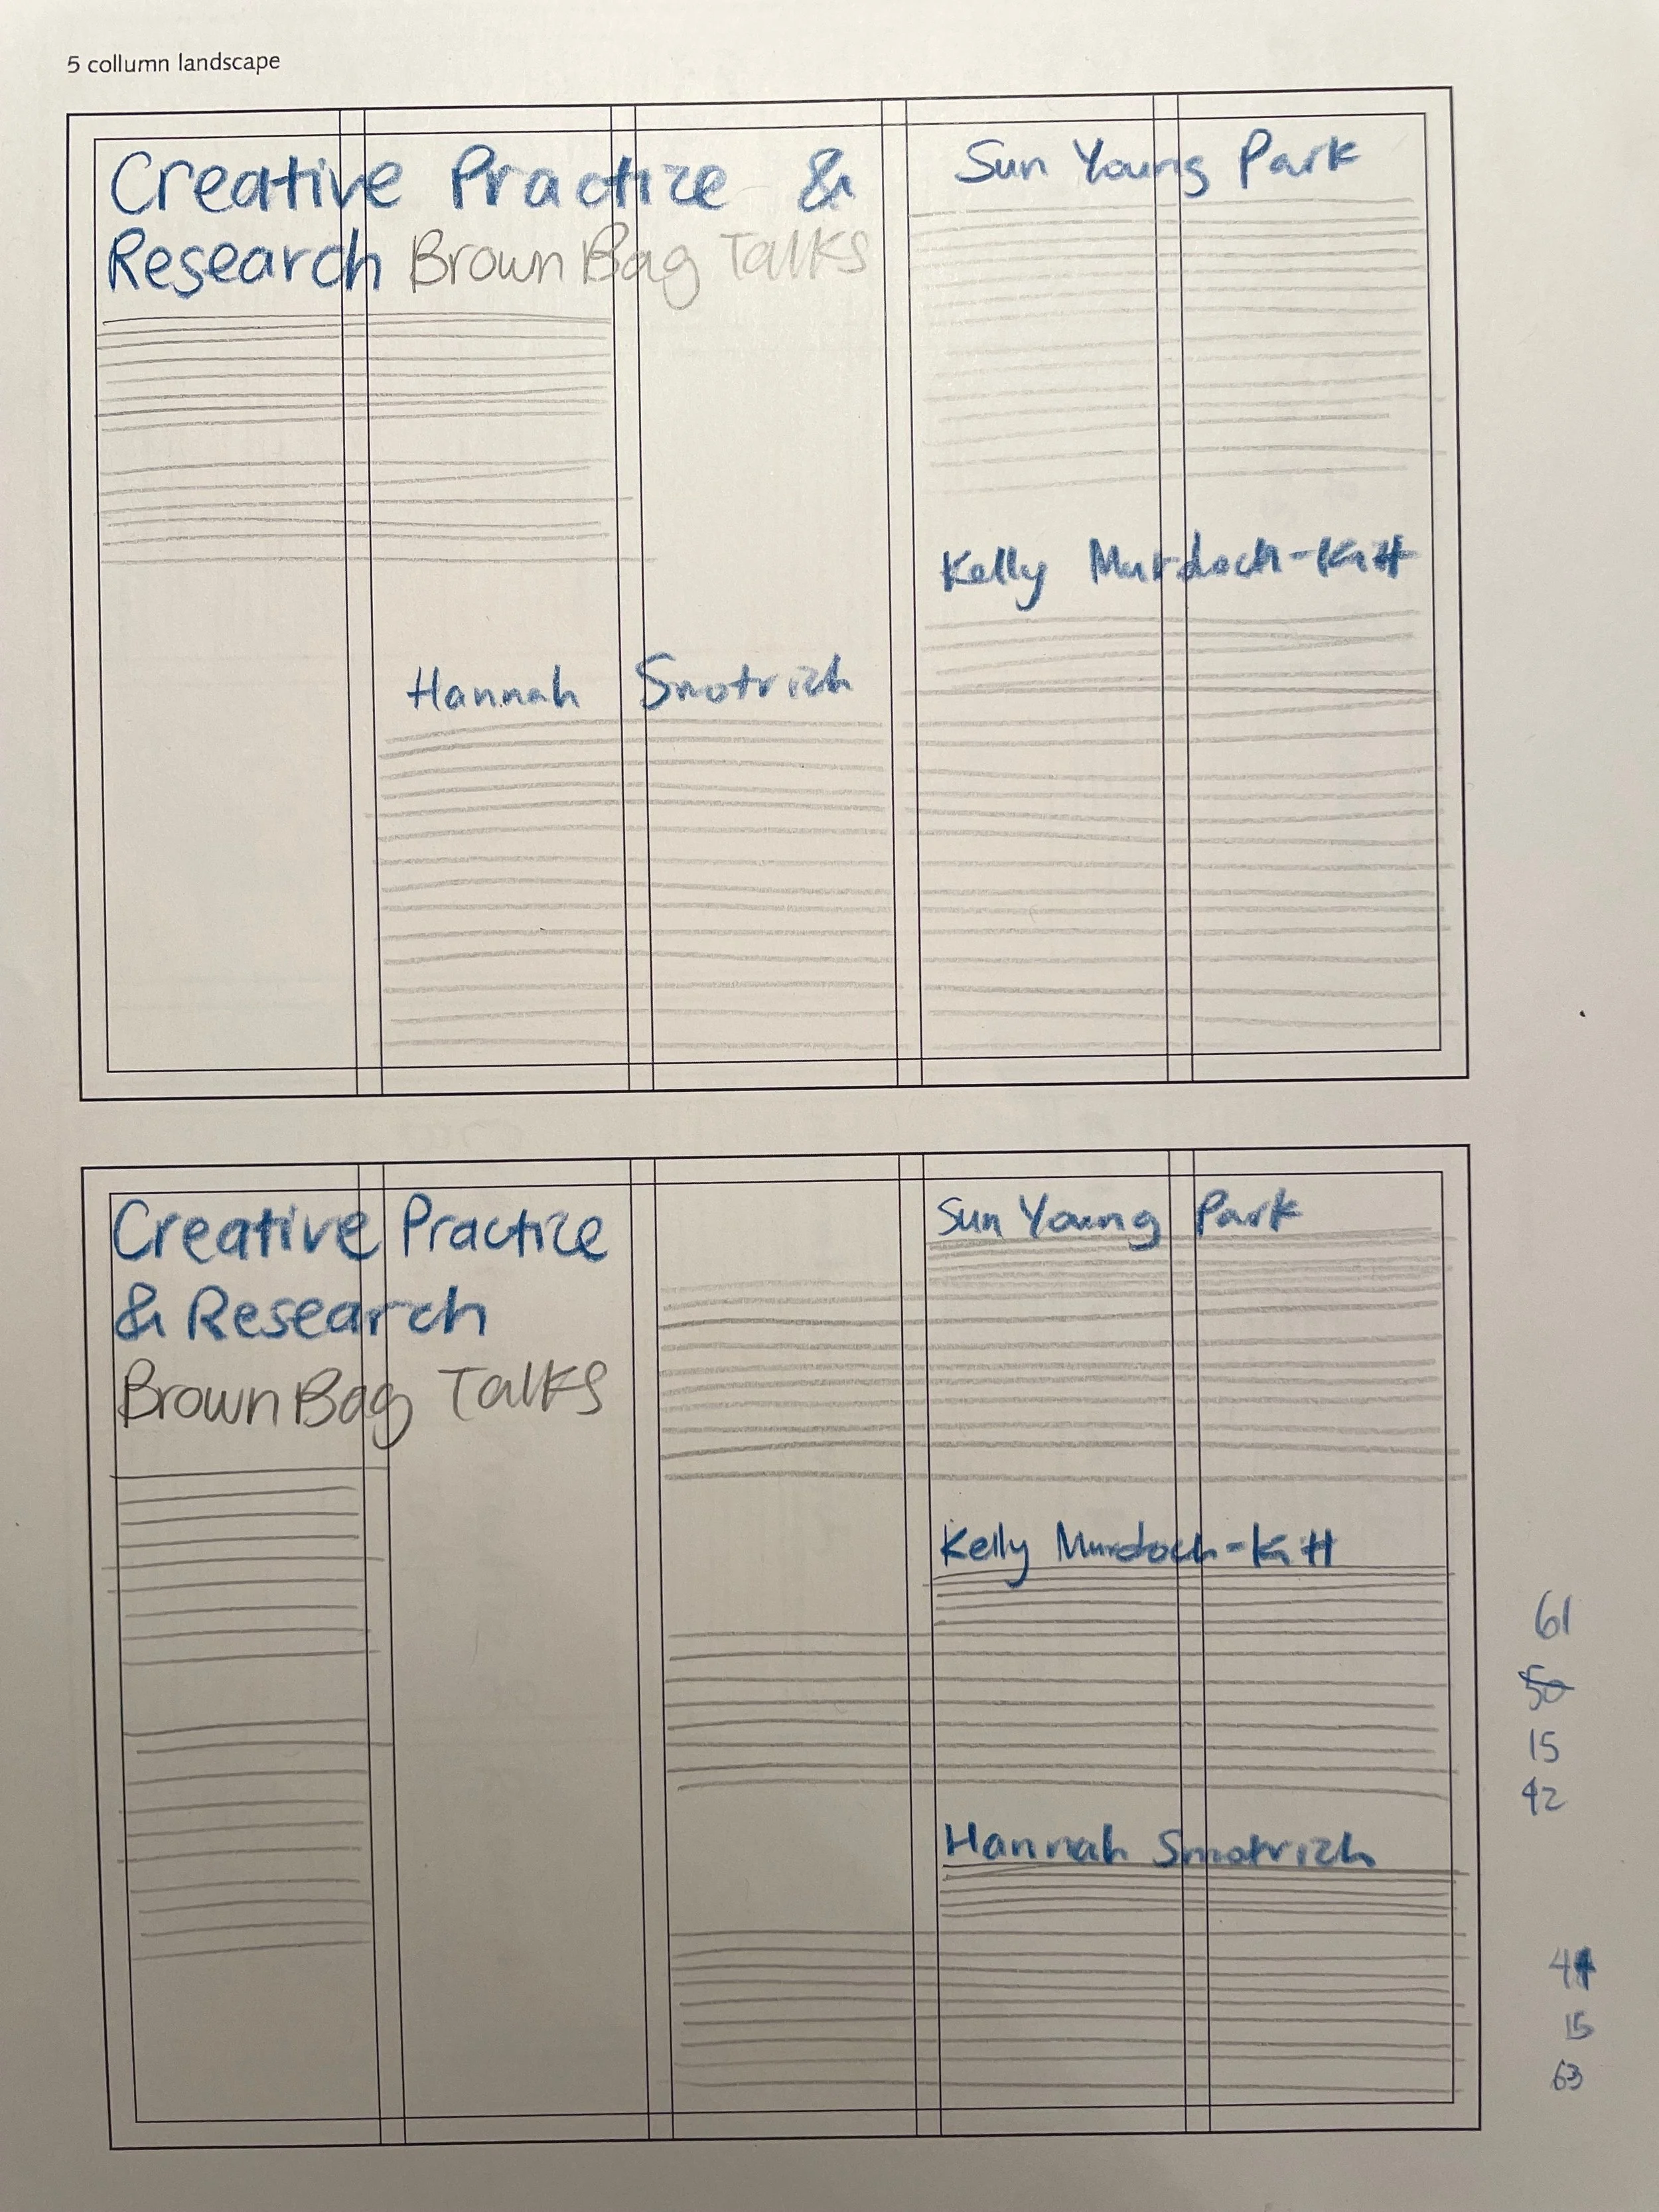 5 collumn landscape
Creative Practice &
Research Brown Bag Talks
Sun Young Park
Kelly Murdoch-Kitt
Hannah Smotrich
Creative Practice
& Research
Brown Bag Talks
Sun Young Park
Kelly Murdoch-Kitt
Hannah Smotrich
61
50
15
42
15
63